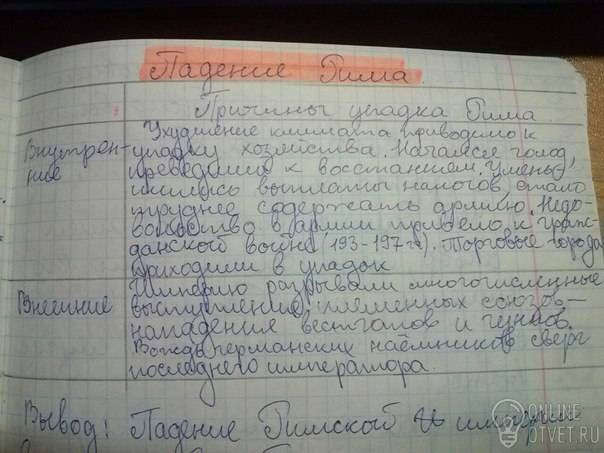 Падение Рима.
Причины упадка Рима
Ухудшение климата приводило к
Внутрен- упадку хозяйства. Начался голод,
ние приведший к восстаниям. Умень
шились выплаты налогов, стало
труднее содержать армию. Недо-
вольство в армии привело к граж-
данской войне (193-197 гг). Торговые города
приходили в упадок
Внешние Империю разрывали многочисленные
выступления племенных союзов-
нападения вестготов и гуннов.
Вождь германских наёмников сверг
последнего императора.
Вывод: Падение Римской империи
ONLINE
OTVET.RU